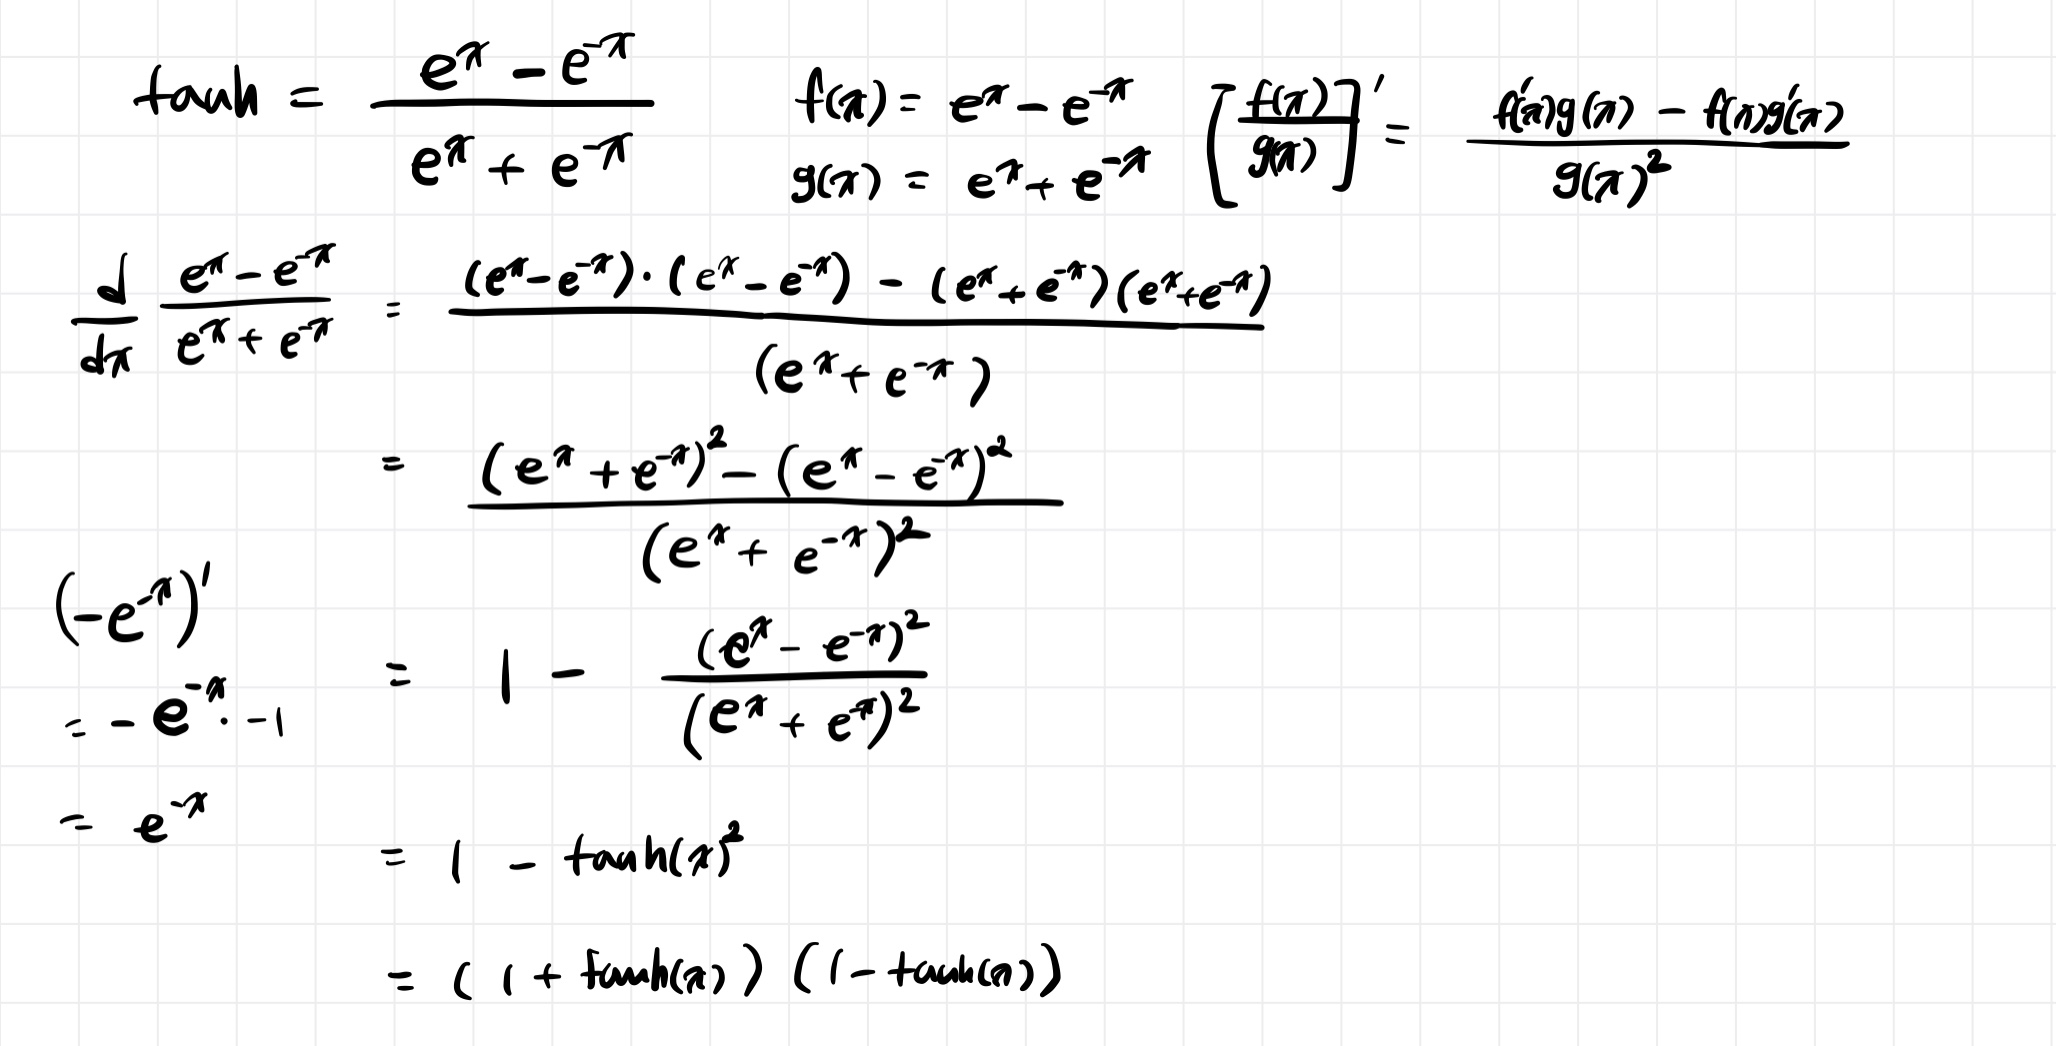 tanh = (e^x − e^-x) / (e^x + e^-x)
f(x) = e^x − e^-x
g(x) = e^x + e^-x
[f(x) / g(x)]' = (f'(x)g(x) − f(x)g'(x)) / g(x)^2
d/dx (e^x − e^-x) / (e^x + e^-x) = ((e^x − e^-x)·(e^x − e^-x) − (e^x + e^-x)(e^x + e^-x)) / (e^x + e^-x)
= ((e^x + e^-x)^2 − (e^x − e^-x)^2) / (e^x + e^-x)^2
= 1 − (e^x − e^-x)^2 / (e^x + e^-x)^2
= 1 − tanh(x)^2
= (1 + tanh(x)) (1 − tanh(x))
(−e^-x)'
= −e^-x · −1
= e^-x